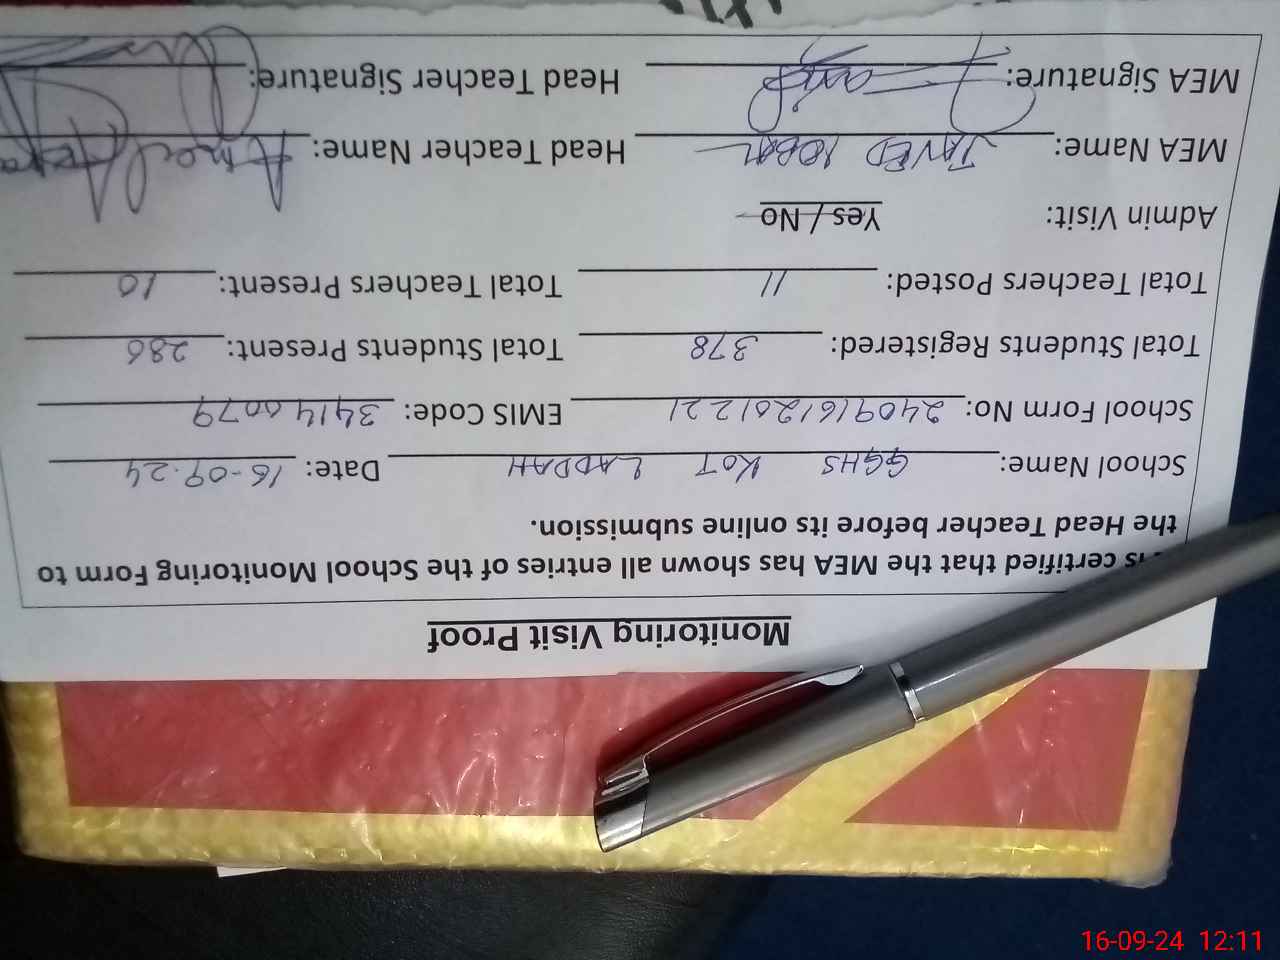 Monitoring Visit Proof
is certified that the MEA has shown all entries of the School Monitoring Form to
the Head Teacher before its online submission.
School Name: GGHS KOT LADDAH Date: 16-09-24
School Form No: 24091612612221 EMIS Code: 34140079
Total Students Registered: 378 Total Students Present: 286
Total Teachers Posted: 11 Total Teachers Present: 10
Admin Visit: Yes / No
MEA Name: JAVED IQBAL Head Teacher Name:
MEA Signature: Head Teacher Signature:
16-09-24 12:11